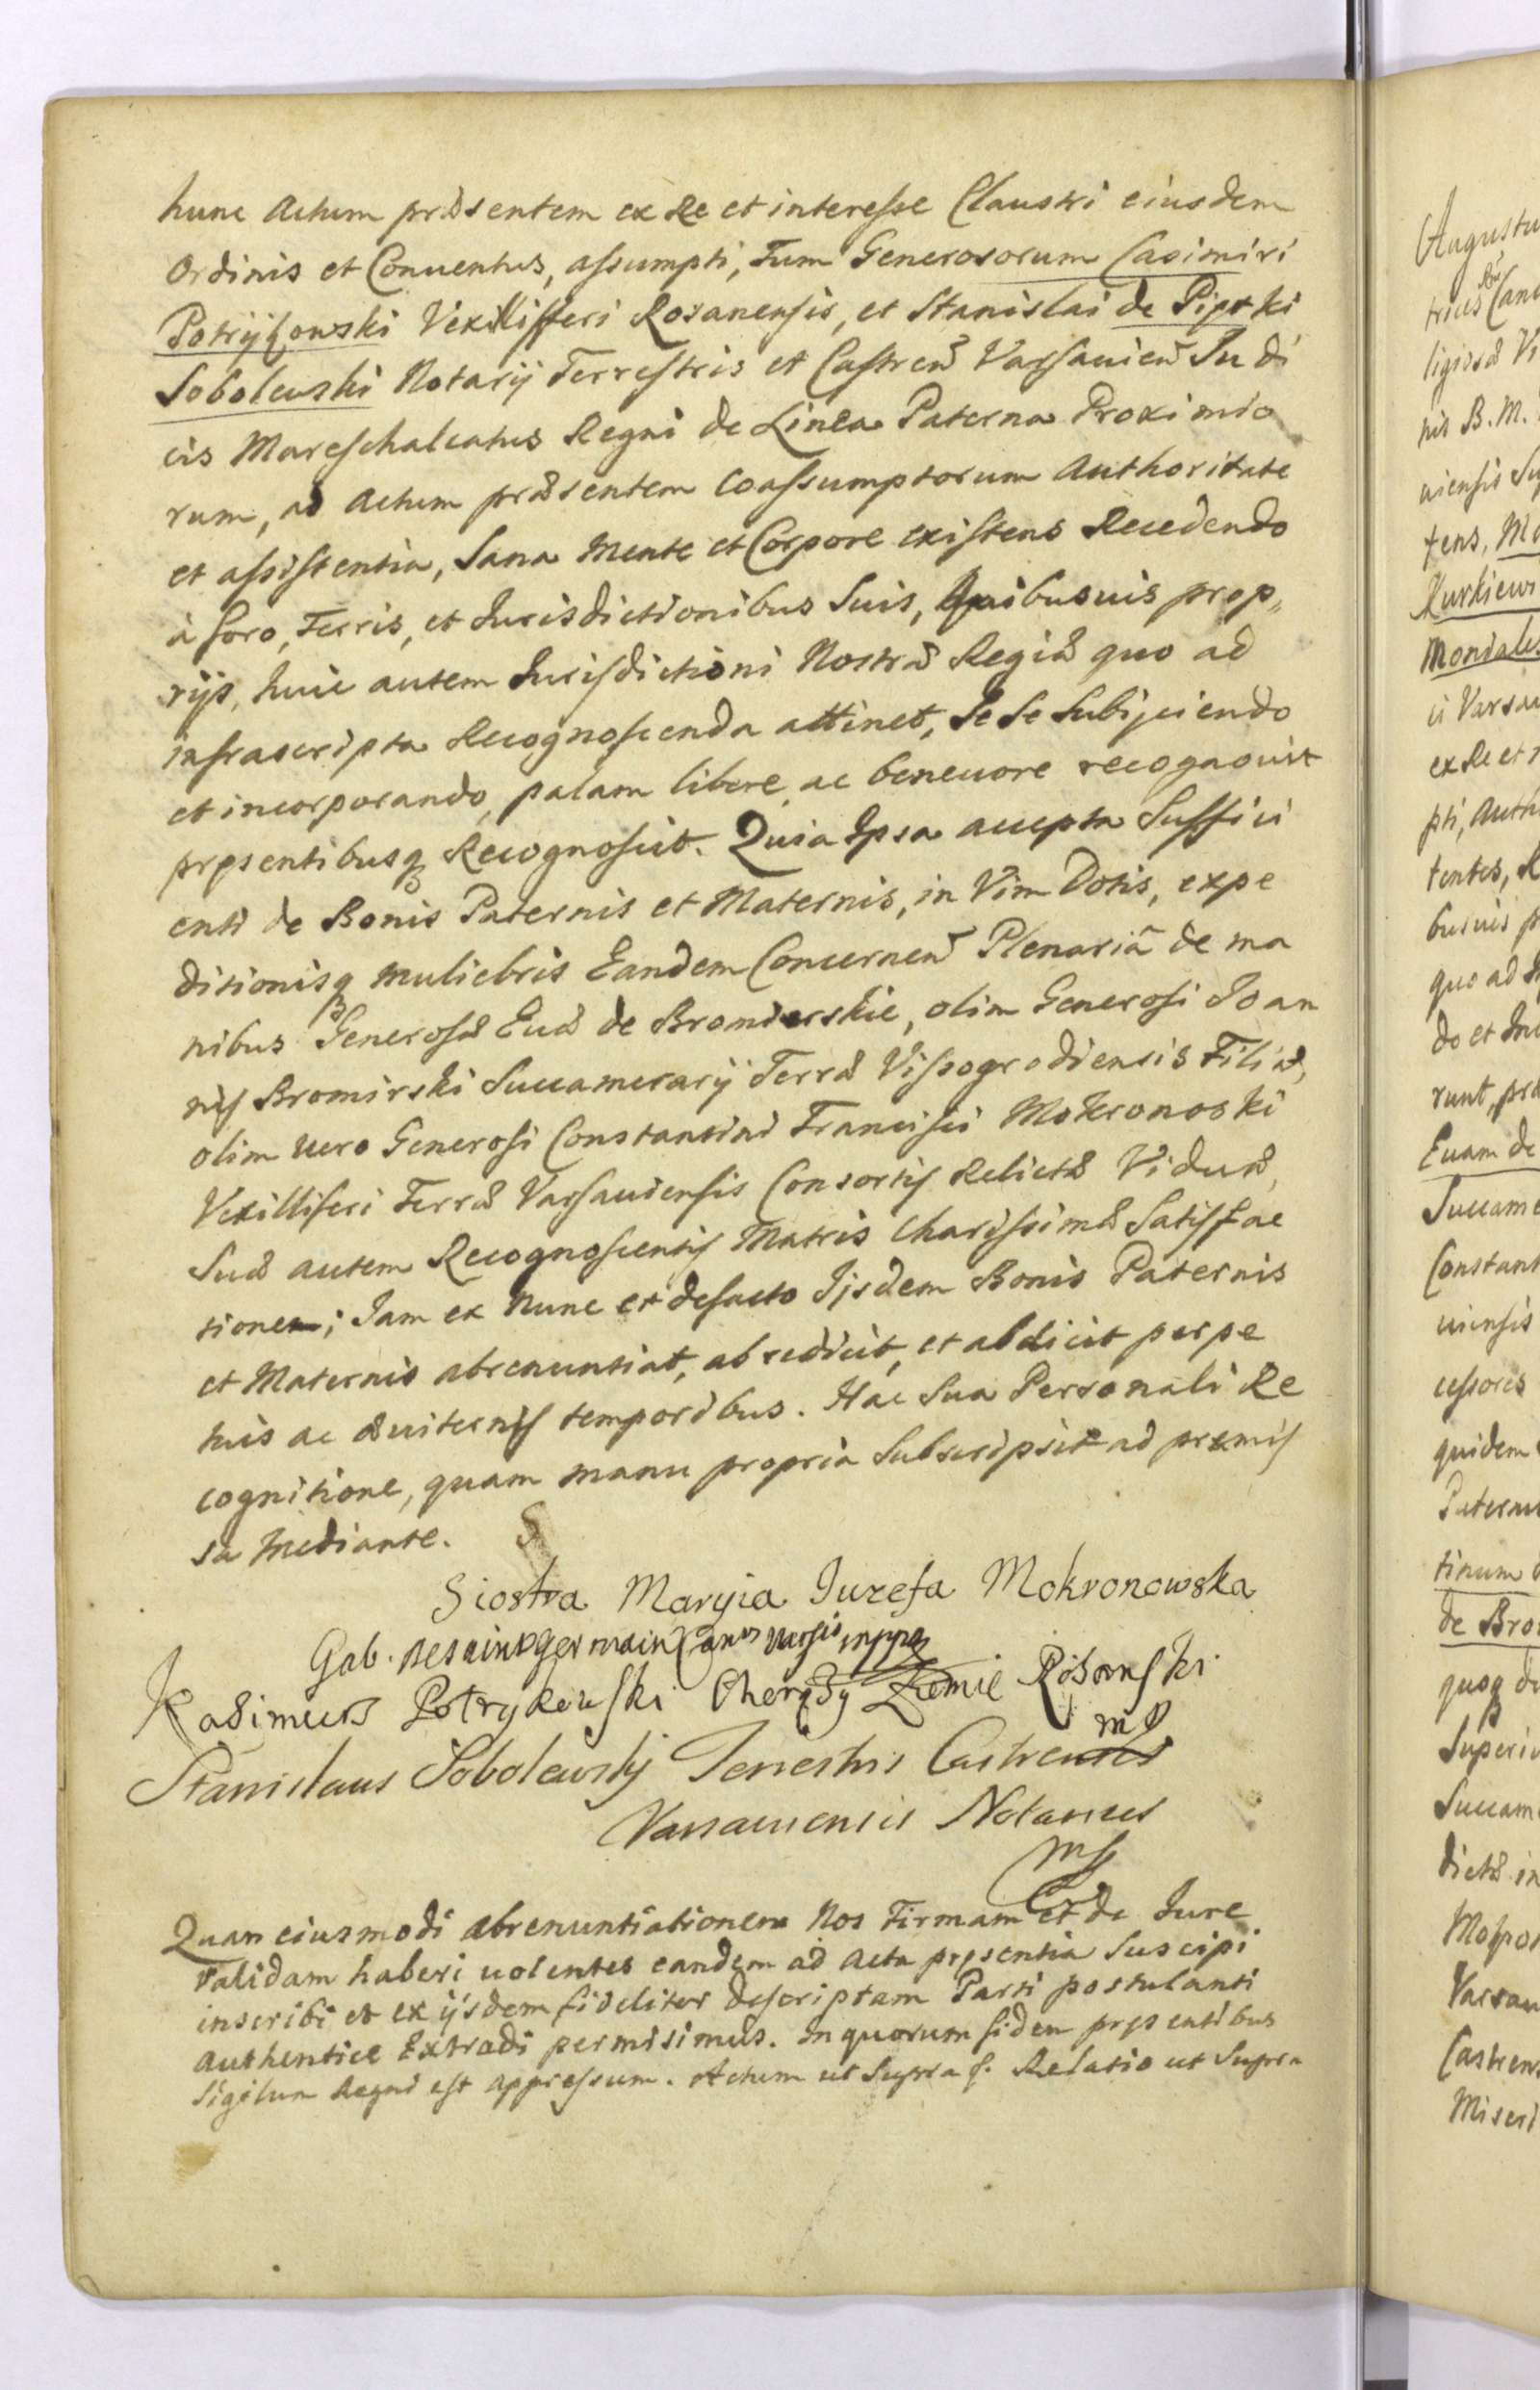 hunc Actum præsentem ex Re et interesse Claustri eiusdem
Ordinis et Conuentus, assumpti, Tum Generosorum Casimiri
Potrÿkowski Vexilliferi Rosanensis, et Stanislai de Piotki
Sobolewski Notarij Terrestris et Castren Varsauien Judi
cis Mareschalcatus Regni de Linea Paterna Proximio
rum, ad Actum præsentem coassumptorum Authoritate
et assistentia, Sana Mente et Corpore existens Recedendo
à foro, Terris, et Jurisdictionibus Suis, Quibusuis prop„
rijs, huic autem Jurisdictioni Nostræ Regiæ quo ad
infrascripta Recognoscenda attinet, Se Se Subijciendo
et incorporando, palam libere, ac beneuore recognouit
pręsentibusq Recognoscit. Quia Ipsa accepta Suffici
enti de Bonis Paternis et Maternis, in Vim Dotis, expe
ditionisq muliebris Eandem Concernen Plenariã de ma
nibus Generosæ Euæ de Bromierskie, olim Generosi Joan
nis Bromirski Succamerarij Terræ Vissogrodiensis Filiæ,
olim uero Generosi Constantini Francisci Mokronoski
Vexilliferi Terræ Varsauiensis Consortis Relictæ Viduæ,
Suæ autem Recognoscentis Matris Charissimæ Satisfac
tionem; Jam ex Nunc et defacto Ijsdem Bonis Paternis
et Maternis abrenuntiat, abredicit, et abdicit perpe
tuis ac æuiternis temporibus. Hac Sua Personali Re
cognitione, quam manu propria Subscripsit ad præmis
sa mediante.
Siostra Maryia Iuzefa Mokronowska
Gab. desaintgermain Canus Varsis mppą
Kazimierz Potrykowski Chorąży Ziemie Różanski
mp
Stanislaus Sobolewskj Terrestris Castrensis
Varsauiensis Notarius
mp
Quam eiusmodi abrenuntiationem Nos Firmam et de Jure
validam haberi uolentes eandem ad Acta pręsentia Suscipi
inscribi et ex ijsdem fideliter descriptam Parti postulanti
authentice Extradi permisimus. In quorum fidem pręsentibus
Sigilum Regni est appressum. Actum ut Supra f. Relatio ut Supra